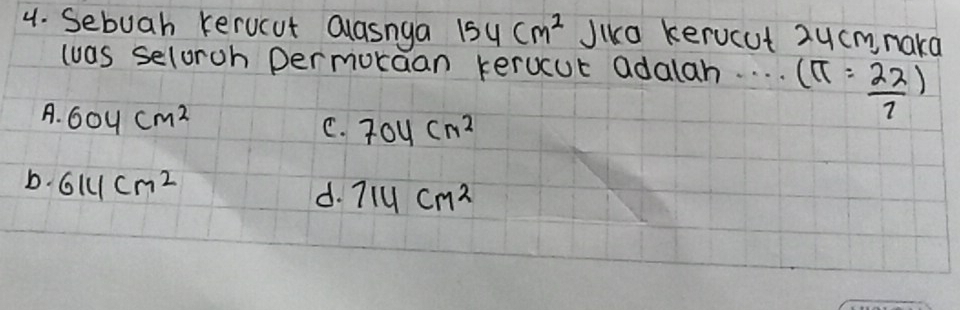 4. Sebuah kerucut alasnya 154 cm² Jika kerucut 24cm, maka
luas seluruh Permukaan kerucut adalah .... (π = 22/7)
A. 604 cm²
C. 704 cm²
b. 614 cm²
d. 714 cm²